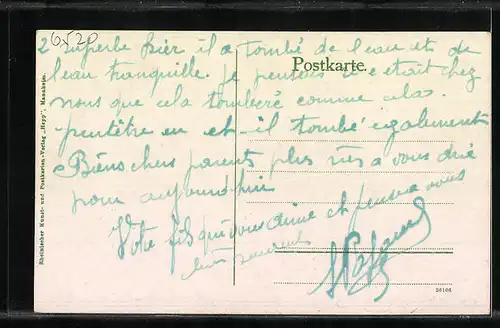 6520
2 superbe hier il a tombé de l'eau et de
l'eau tranquille. Je pensais
Postkarte.
c etait chez
nous que cela tomberé comme cela
peutêtre en et-il tombé également
Biens chers parents plus rien a vous dire
pour aujourdhui
Votre fils qui vous aime et pense a vous
bien souvent
Rheinischer Kunst- und Postkarten-Verlag „Hepp", Mannheim.
26106